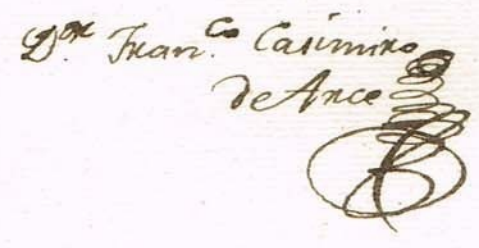 D.or Fran.co Casimiro
de Arce